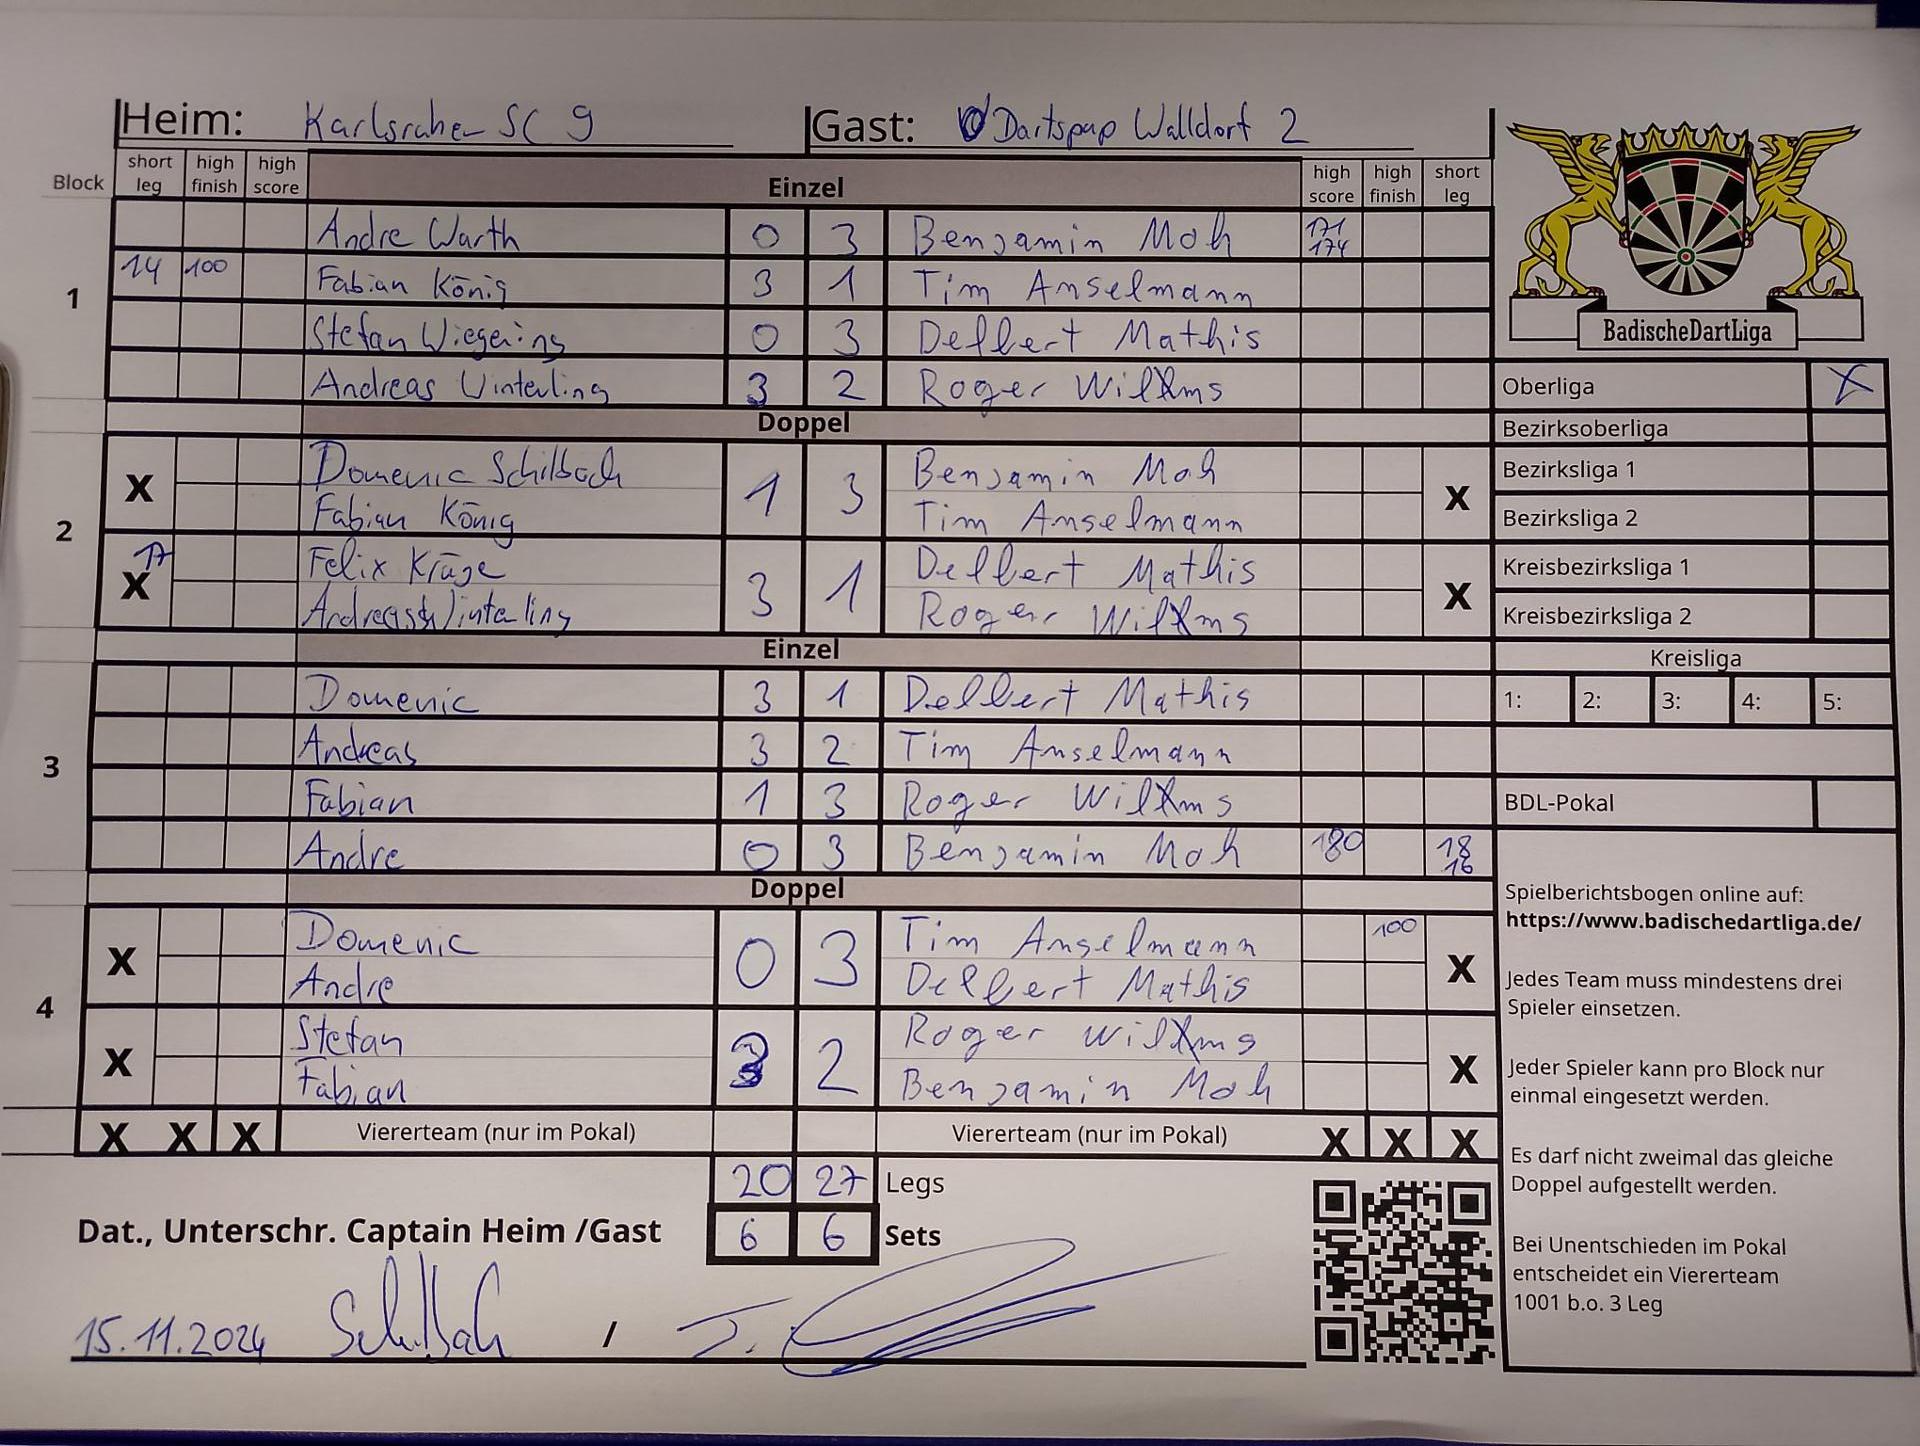 Heim: Karlsruher SC 9 Gast: Dartspap Walldorf 2
Block short leg high finish high score Einzel high score high finish short leg
Andre Warth 0 3 Benjamin Moh 171 174
1 14 100 Fabian König 3 1 Tim Anselmann
Stefan Wiegering 0 3 Delbert Mathis
Andreas Winterling 3 2 Roger Willms
BadischeDartLiga
Oberliga X
Doppel
Bezirksoberliga
2 X Domenic Schilbach 1 3 Benjamin Moh X
Fabian König Tim Anselmann
Bezirksliga 1
Bezirksliga 2
X 17 Felix Kräge 3 1 Delbert Mathis X
Andreas Winterling Roger Willms
Kreisbezirksliga 1
Kreisbezirksliga 2
Einzel
Kreisliga
1: 2: 3: 4: 5:
3 Domenic 3 1 Delbert Mathis
Andreas 3 2 Tim Anselmann
Fabian 1 3 Roger Willms
Andre 0 3 Benjamin Moh 180 18 16
BDL-Pokal
Doppel
4 X Domenic 0 3 Tim Anselmann 100 X
Andre Delbert Mathis
X Stefan 3 2 Roger Willms X
Fabian Benjamin Moh
X X X Vierterteam (nur im Pokal) Viererteam (nur im Pokal) X X X
20 27 Legs
6 6 Sets
Dat., Unterschr. Captain Heim /Gast
15.11.2024 Schilbach /
Spielberichtsbogen online auf:
https://www.badischedartliga.de/
Jedes Team muss mindestens drei
Spieler einsetzen.
Jeder Spieler kann pro Block nur
einmal eingesetzt werden.
Es darf nicht zweimal das gleiche
Doppel aufgestellt werden.
Bei Unentschieden im Pokal
entscheidet ein Viererteam
1001 b.o. 3 Leg